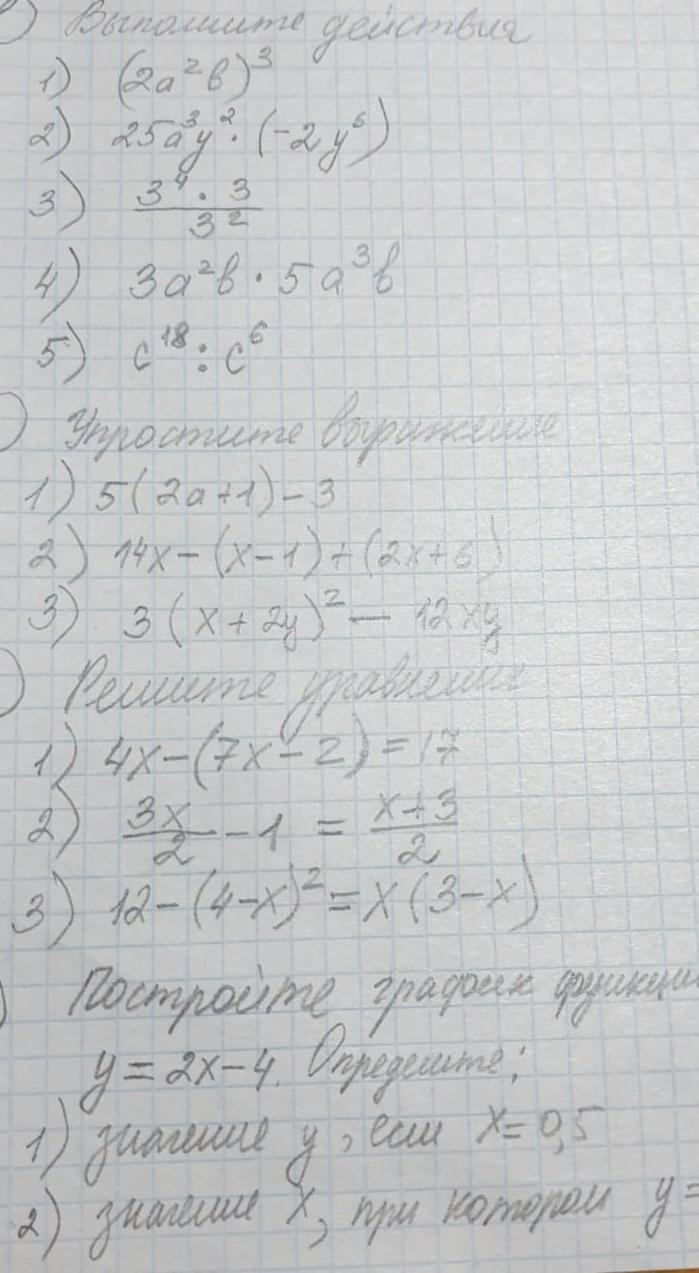 ) Выполните действия
1) (2a²b)³
2) 25a³y² · (-2y⁶)
3) 3⁴ · 3 / 3²
4) 3a²b · 5a³b
5) c¹⁸ : c⁶
) Упростите выражение
1) 5(2a+1)-3
2) 14x-(x-1)+(2x+6)
3) 3(x+2y)² - 12xy
) Решите уравнение
1) 4x-(7x-2)=17
2) 3x/2 - 1 = x+3/2
3) 12-(4-x)²=x(3-x)
) Постройте график функции
y=2x-4. Определите:
1) значение y, если x=0,5
2) значение x, при котором y=